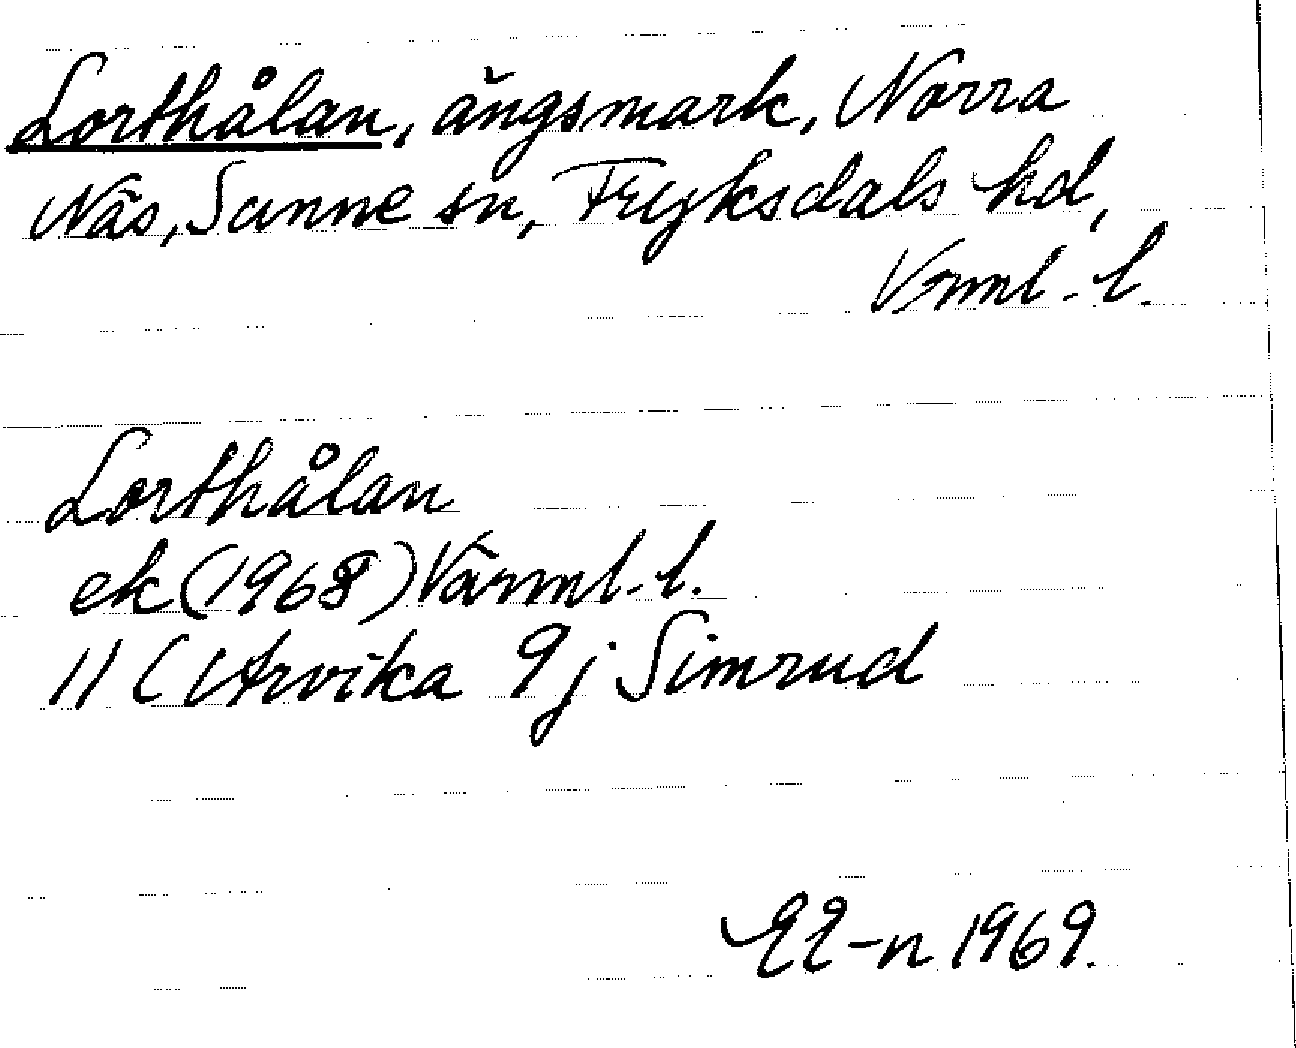 Lorthålan, ängsmark, Norra
Näs, Sunne sn, Fryksdals hd,
Vrml. l.
Lorthålan
ek (1968) Värml. l.
11 C Arvika 9j Simrud
EE-n 1969.